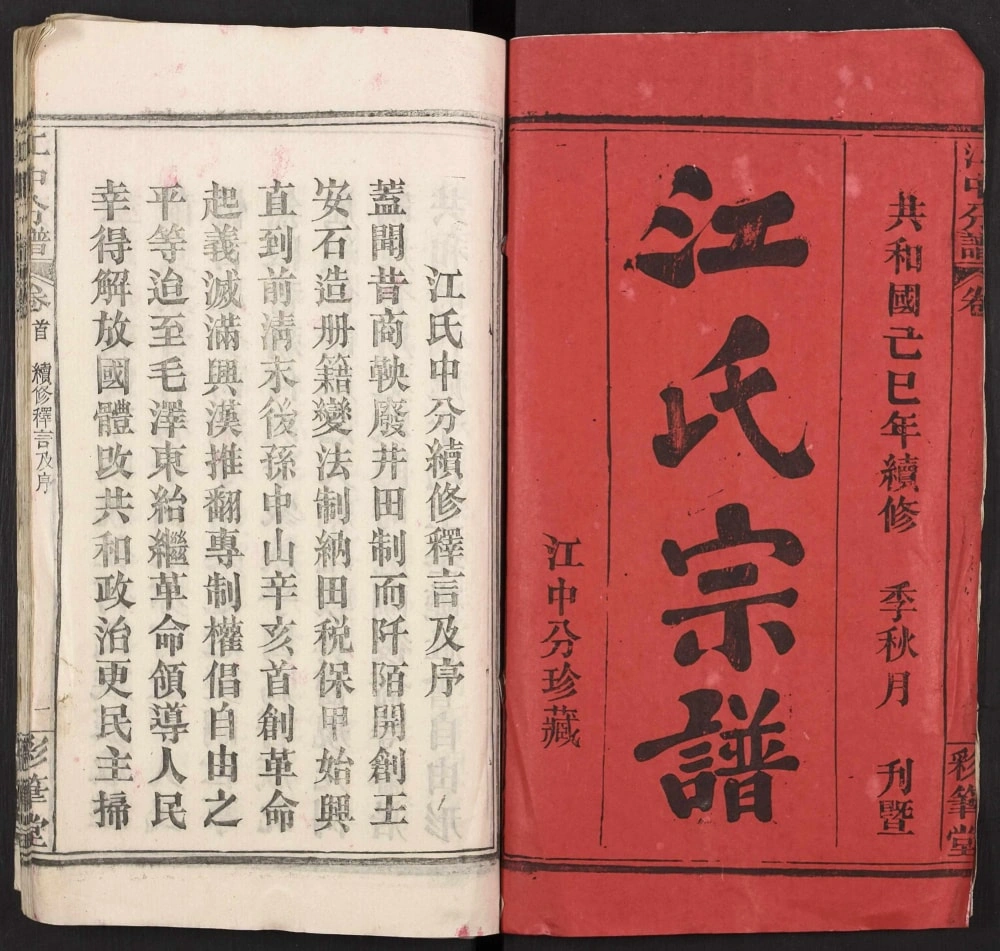 江中分譜 卷
彩筆堂
共和國己巳年續修 季秋月 刋暨
江氏宗譜
江中分珍藏
江氏中分續修釋言及序
蓋聞昔商鞅廢井田制而阡陌開創王
安石造册籍變法制納田税保甲始興
直到前清末後孫中山辛亥首創革命
起義滅滿興漢推翻專制權倡自由之
平等迨至毛澤東紿繼革命領導人民
幸得解放國體改共和政治更民主掃
江中分譜 卷首 續修釋言及序 一
彩筆堂